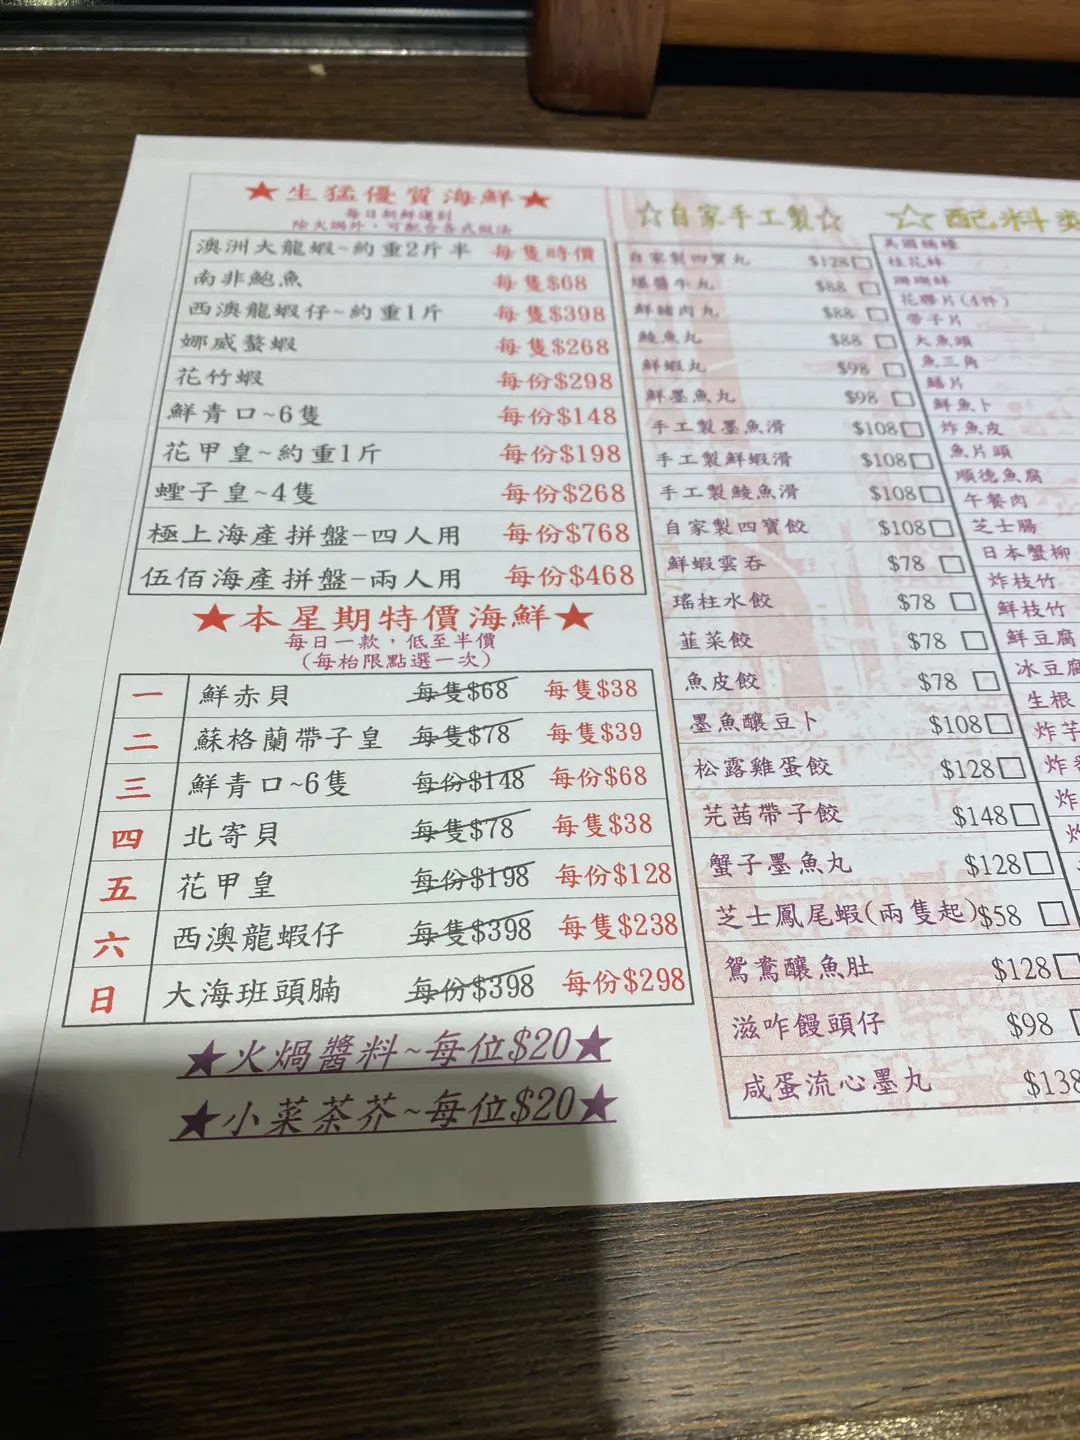 ★生猛優質海鮮★
每日新鮮運到
除火鍋外，可配合各式做法
澳洲大龍蝦~約重2斤半 每隻時價
南非鮑魚 每隻$68
西澳龍蝦仔~約重1斤 每隻$398
娜威螯蝦 每隻$268
花竹蝦 每份$298
鮮青口~6隻 每份$148
花甲皇~約重1斤 每份$198
蟶子皇~4隻 每份$268
極上海產拼盤-四人用 每份$768
伍佰海產拼盤-兩人用 每份$468
★本星期特價海鮮★
每日一款，低至半價
（每枱限點選一次）
一 鮮赤貝 每隻$68 每隻$38
二 蘇格蘭帶子皇 每隻$78 每隻$39
三 鮮青口~6隻 每份$148 每份$68
四 北寄貝 每隻$78 每隻$38
五 花甲皇 每份$198 每份$128
六 西澳龍蝦仔 每隻$398 每隻$238
日 大海班頭腩 每份$398 每份$298
★火煱醬料~每位$20★
★小菜茶芥~每位$20★
☆自家手工製☆
自家製四寶丸 $128
爆醬牛丸 $88
鮮豬肉丸 $88
鯪魚丸 $88
鮮蝦丸 $98
鮮墨魚丸 $98
手工製墨魚滑 $108
手工製鮮蝦滑 $108
手工製鯪魚滑 $108
自家製四寶餃 $108
鮮蝦雲吞 $78
瑤柱水餃 $78
韮菜餃 $78
魚皮餃 $78
墨魚釀豆卜 $108
松露雞蛋餃 $128
芫茜帶子餃 $148
蟹子墨魚丸 $128
芝士鳳尾蝦(兩隻起)$58
鴛鴦釀魚肚 $128
滋咋饅頭仔 $98
咸蛋流心墨丸 $138
☆配料類
美國桶蠔
桂花蚌
珊瑚蚌
花膠片(4件)
帶子片
大魚頭
魚三角
鱔片
鮮魚卜
炸魚皮
魚片頭
順德魚腐
午餐肉
芝士腸
日本蟹柳
炸枝竹
鮮枝竹
鮮豆腐
冰豆腐
生根
炸芋
炸
炸
炸